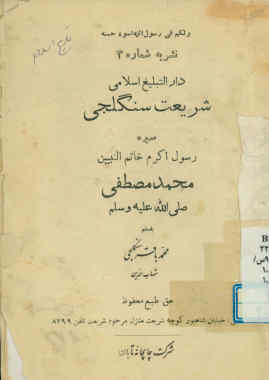 ولکم فی رسول الله اسوة حسنة
نشریه شماره ۳
دارالتبلیغ اسلامی
شریعت سنگلجی
سیره
رسول اکرم خاتم النبیین
محمد مصطفی
صلی الله علیه وسلم
بقلم
محمد باقر سنگلجی
حق طبع محفوظ
خیابان شاهپور کوچه شریعت منزل مرحوم شریعت تلفن ۸۲۹۹
شرکت چاپخانه تابان